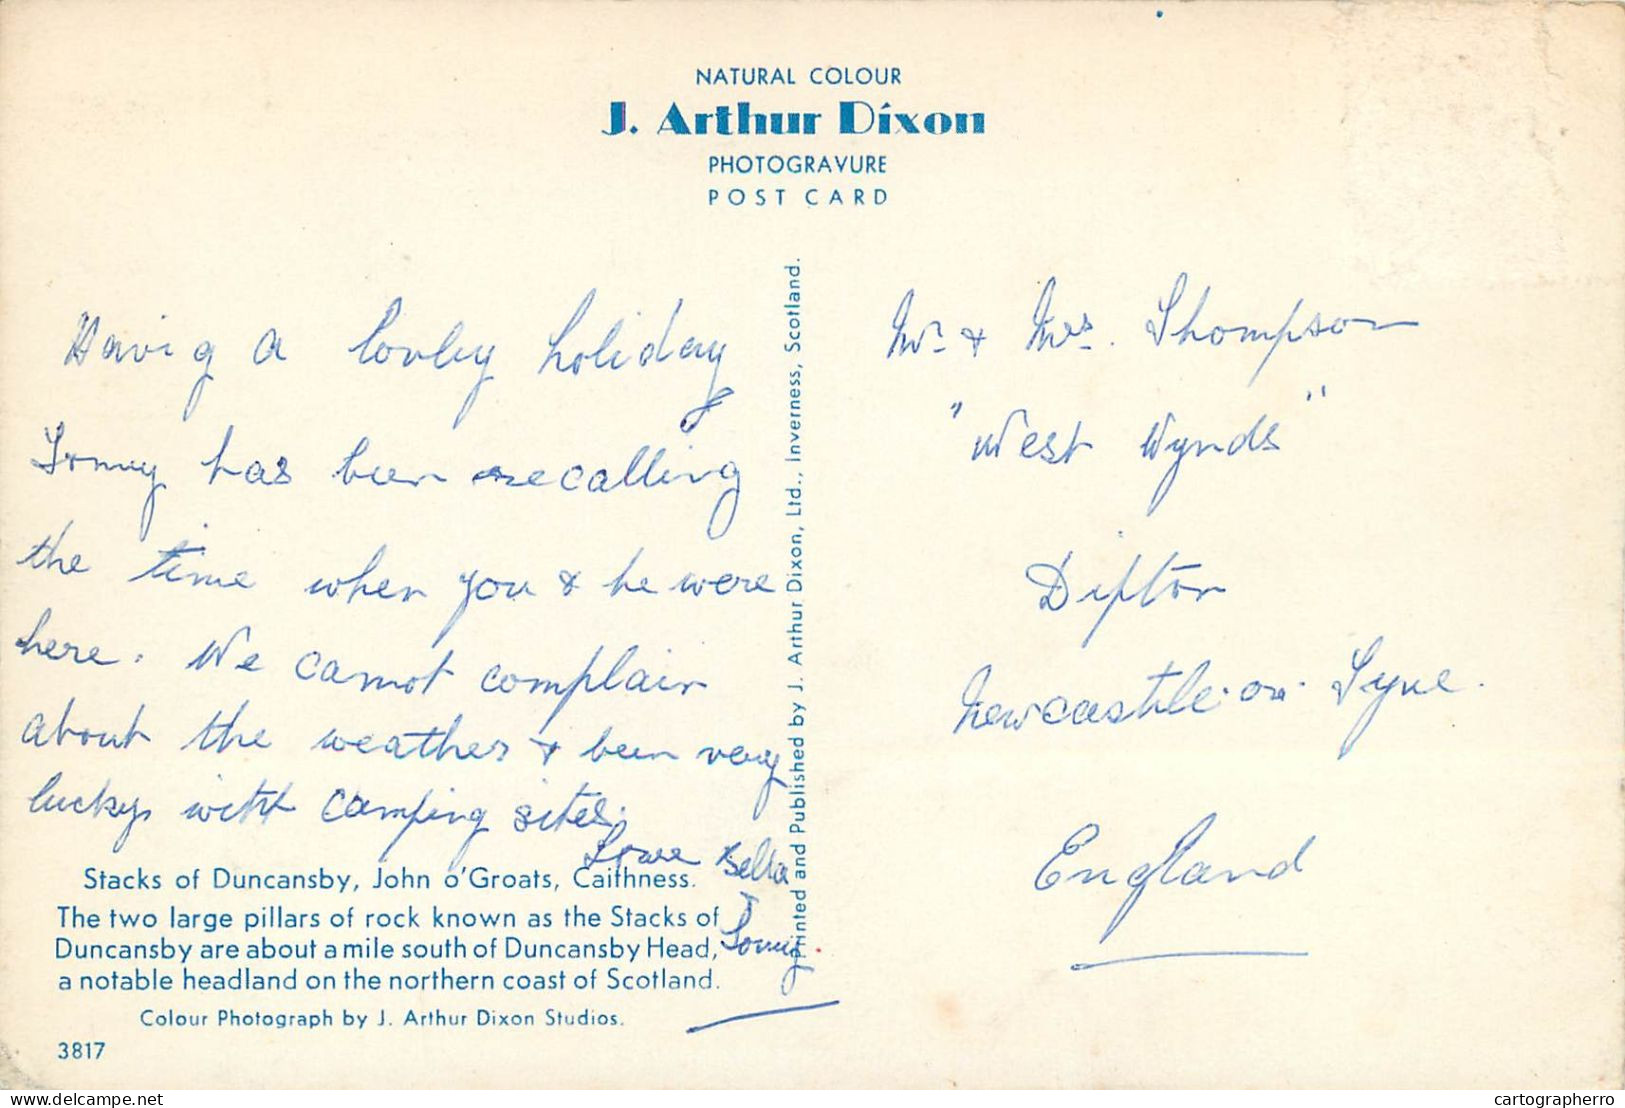 NATURAL COLOUR
J. Arthur Dixon
PHOTOGRAVURE
POST CARD
Havig a lovley holiday
Tommy has been recalling
the time when you & he were
here. We cannot complain
about the weather & been very
lucky with camping sites.
Love Bella
& Tommy.
Stacks of Duncansby, John o'Groats, Caithness.
The two large pillars of rock known as the Stacks of
Duncansby are about a mile south of Duncansby Head,
a notable headland on the northern coast of Scotland.
Colour Photograph by J. Arthur Dixon Studios.
3817
Printed and Published by J. Arthur Dixon, Ltd., Inverness, Scotland.
Mr. & Mrs. Thompson
"West Wynds"
Dipton
Newcastle-on-Tyne.
England
delcampe.net
cartographerro